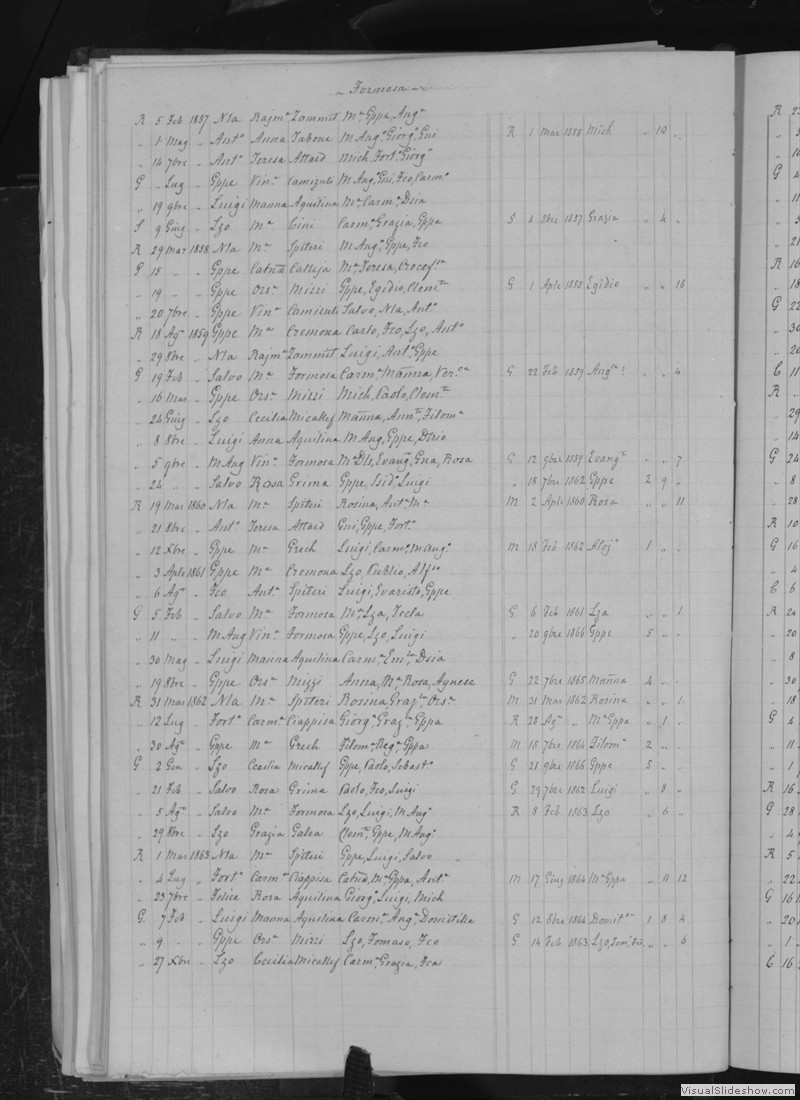 Formosa
R 5 Feb 1857 Nla Rajm.ª Zammit, M.ª Gppa, Ang.ª
„ 1 Mag „ Ant.º Anna Tabone M Ang.ª Giorg.ª Gui R 1 Mar 1858 Mich „ 10 „
„ 14 7bre „ Ant.º Teresa Attard Mich, Fort.ª Giorg.ª
G „ Lug „ Gppe Vin.ª Camizuli M Ang.ª, Gui, Fco, Carm.ª
„ 19 9bre „ Luigi Manna Aquilina M.ª Carm.ª Dsia
S 9 Giug „ Lzo M.ª Cini Carm.ª, Grazia, Gppa S 4 8bre 1857 Grazia „ 4 „
R 29 Mar 1858 Nla M.ª Spiteri M Ang.ª, Gppe, Fco
G 15 „ „ Gppe Catña Calleja M.ª, Teresa, Crocef.ª
„ 19 „ „ Gppe Ors.ª Mizzi Gppe, Egidio, Clem.te G 1 Aple 1858 Egidio „ „ 16
„ 20 7bre „ Gppe Vin.ª Camizuli Salvo, Nla, Ant.º
R 18 Ag.º 1859 Gppe M.ª Cremona Carlo, Fco, Lzo, Ant.º
„ 29 8bre „ Nla Rajm.ª Zammit Luigi, Ant.º, Gppe
G 19 Feb „ Salvo M.ª Formosa Carm.ª Manna, Ver.ca G 22 Feb 1859 Ang.ca „ „ 4
„ 16 Mar „ Gppe Ors.ª Mizzi Mich, Paolo, Clem.te
„ 24 Giug „ Lzo Cecilia Micallef Manna, Ann.ta, Filom.ª
„ 8 8bre „ Luigi Anna Aquilina M Ang, Gppe, Dtrio
„ 5 9bre „ M Ang Vin.ª Formosa M.ª Dls, Evang.ª, Gna, Rosa G 12 9bre 1859 Evang.ª „ „ 7
„ 24 „ „ Salvo Rosa Grima Gppe, Isid.º, Luigi „ 18 7bre 1862 Gppe 2 9 „
R 19 Mar 1860 Nla M.ª Spiteri Rosina, Ant.ª M.ª M 2 Aple 1860 Rosa „ „ 11
„ 21 8bre „ Ant.º Teresa Attard Gui, Gppe, Fort.º
„ 12 Xbre „ Gppe M.ª Grech Luigi, Carm.º, M Ang.º M 18 Feb 1862 Aloj.º 1 „ „
„ 3 Aple 1861 Gppe M.ª Cremona Lzo, Publio, Alf.so
„ 6 Ag.º „ Fco Ant.ª Spiteri Luigi, Evaristo, Gppe
G 5 Feb „ Salvo M.ª Formosa M.ª, Lza, Tecla G 6 Feb 1861 Lza „ „ 1
„ 11 „ „ M Ang Vin.ª Formosa Gppe, Lzo, Luigi „ 20 9bre 1866 Gppe 5 „ „
„ 30 Mag „ Luigi Manna Aquilina Carm.ª, Em.la, Dsia
„ 19 8bre „ Gppe Ors.ª Mizzi Anna, M.ª Rosa, Agnese G 22 7bre 1865 Manna 4 „ „
R 31 Mar 1862 Nla M.ª Spiteri Rosina, Graz.ª, Ors.ª M 31 Mar 1862 Rosina „ „ 1
„ 12 Lug „ Fort.º Carm.ª Ciappisa Giorg.ª, Graz.ª Gppa R 28 Ag.º „ M.ª Gppa „ 1 „
„ 30 Ag.º „ Gppe M.ª Grech Filom.ª Reg.ª, Gppa M 18 7bre 1864 Filom.ª 2 „ „
G 2 Gen „ Lzo Cecilia Micallef Gppe, Paolo, Sebast.º G 21 9bre 1866 Gppe 5 „ „
„ 21 Feb „ Salvo Rosa Grima Paolo, Fco, Luigi G 29 7bre 1862 Luigi „ 8 „
„ 5 Ag.º „ Salvo M.ª Formosa Lzo, Luigi, M Ang.º R 8 Feb 1863 Lzo „ 6 „
„ 29 8bre „ Lzo Grazia Galea Clem.te, Gppe, M Ang.º
R 1 Mar 1863 Nla M.ª Spiteri Gppe, Luigi, Salvo
„ 4 Lug „ Fort.º Carm.ª Ciappisa Catña, M.ª Gppa, Ant.ª M 17 Giug 1864 M.ª Gppa „ 11 12
„ 23 7bre „ Felice Rosa Aquilina Giorg.º, Luigi, Mich
G 7 Feb „ Luigi Manna Aquilina Carm.ª, Ang.ª, Domitilla G 12 8bre 1864 Domit.la 1 8 4
„ 9 „ „ Gppe Ors.ª Mizzi Lzo, Tomaso, Fco G 14 Feb 1863 Lzo, Tom.º, Fco „ „ 6
„ 27 Xbre „ Lzo Cecilia Micallef Carm.ª, Grazia, Fca
VisualSlideshow.com